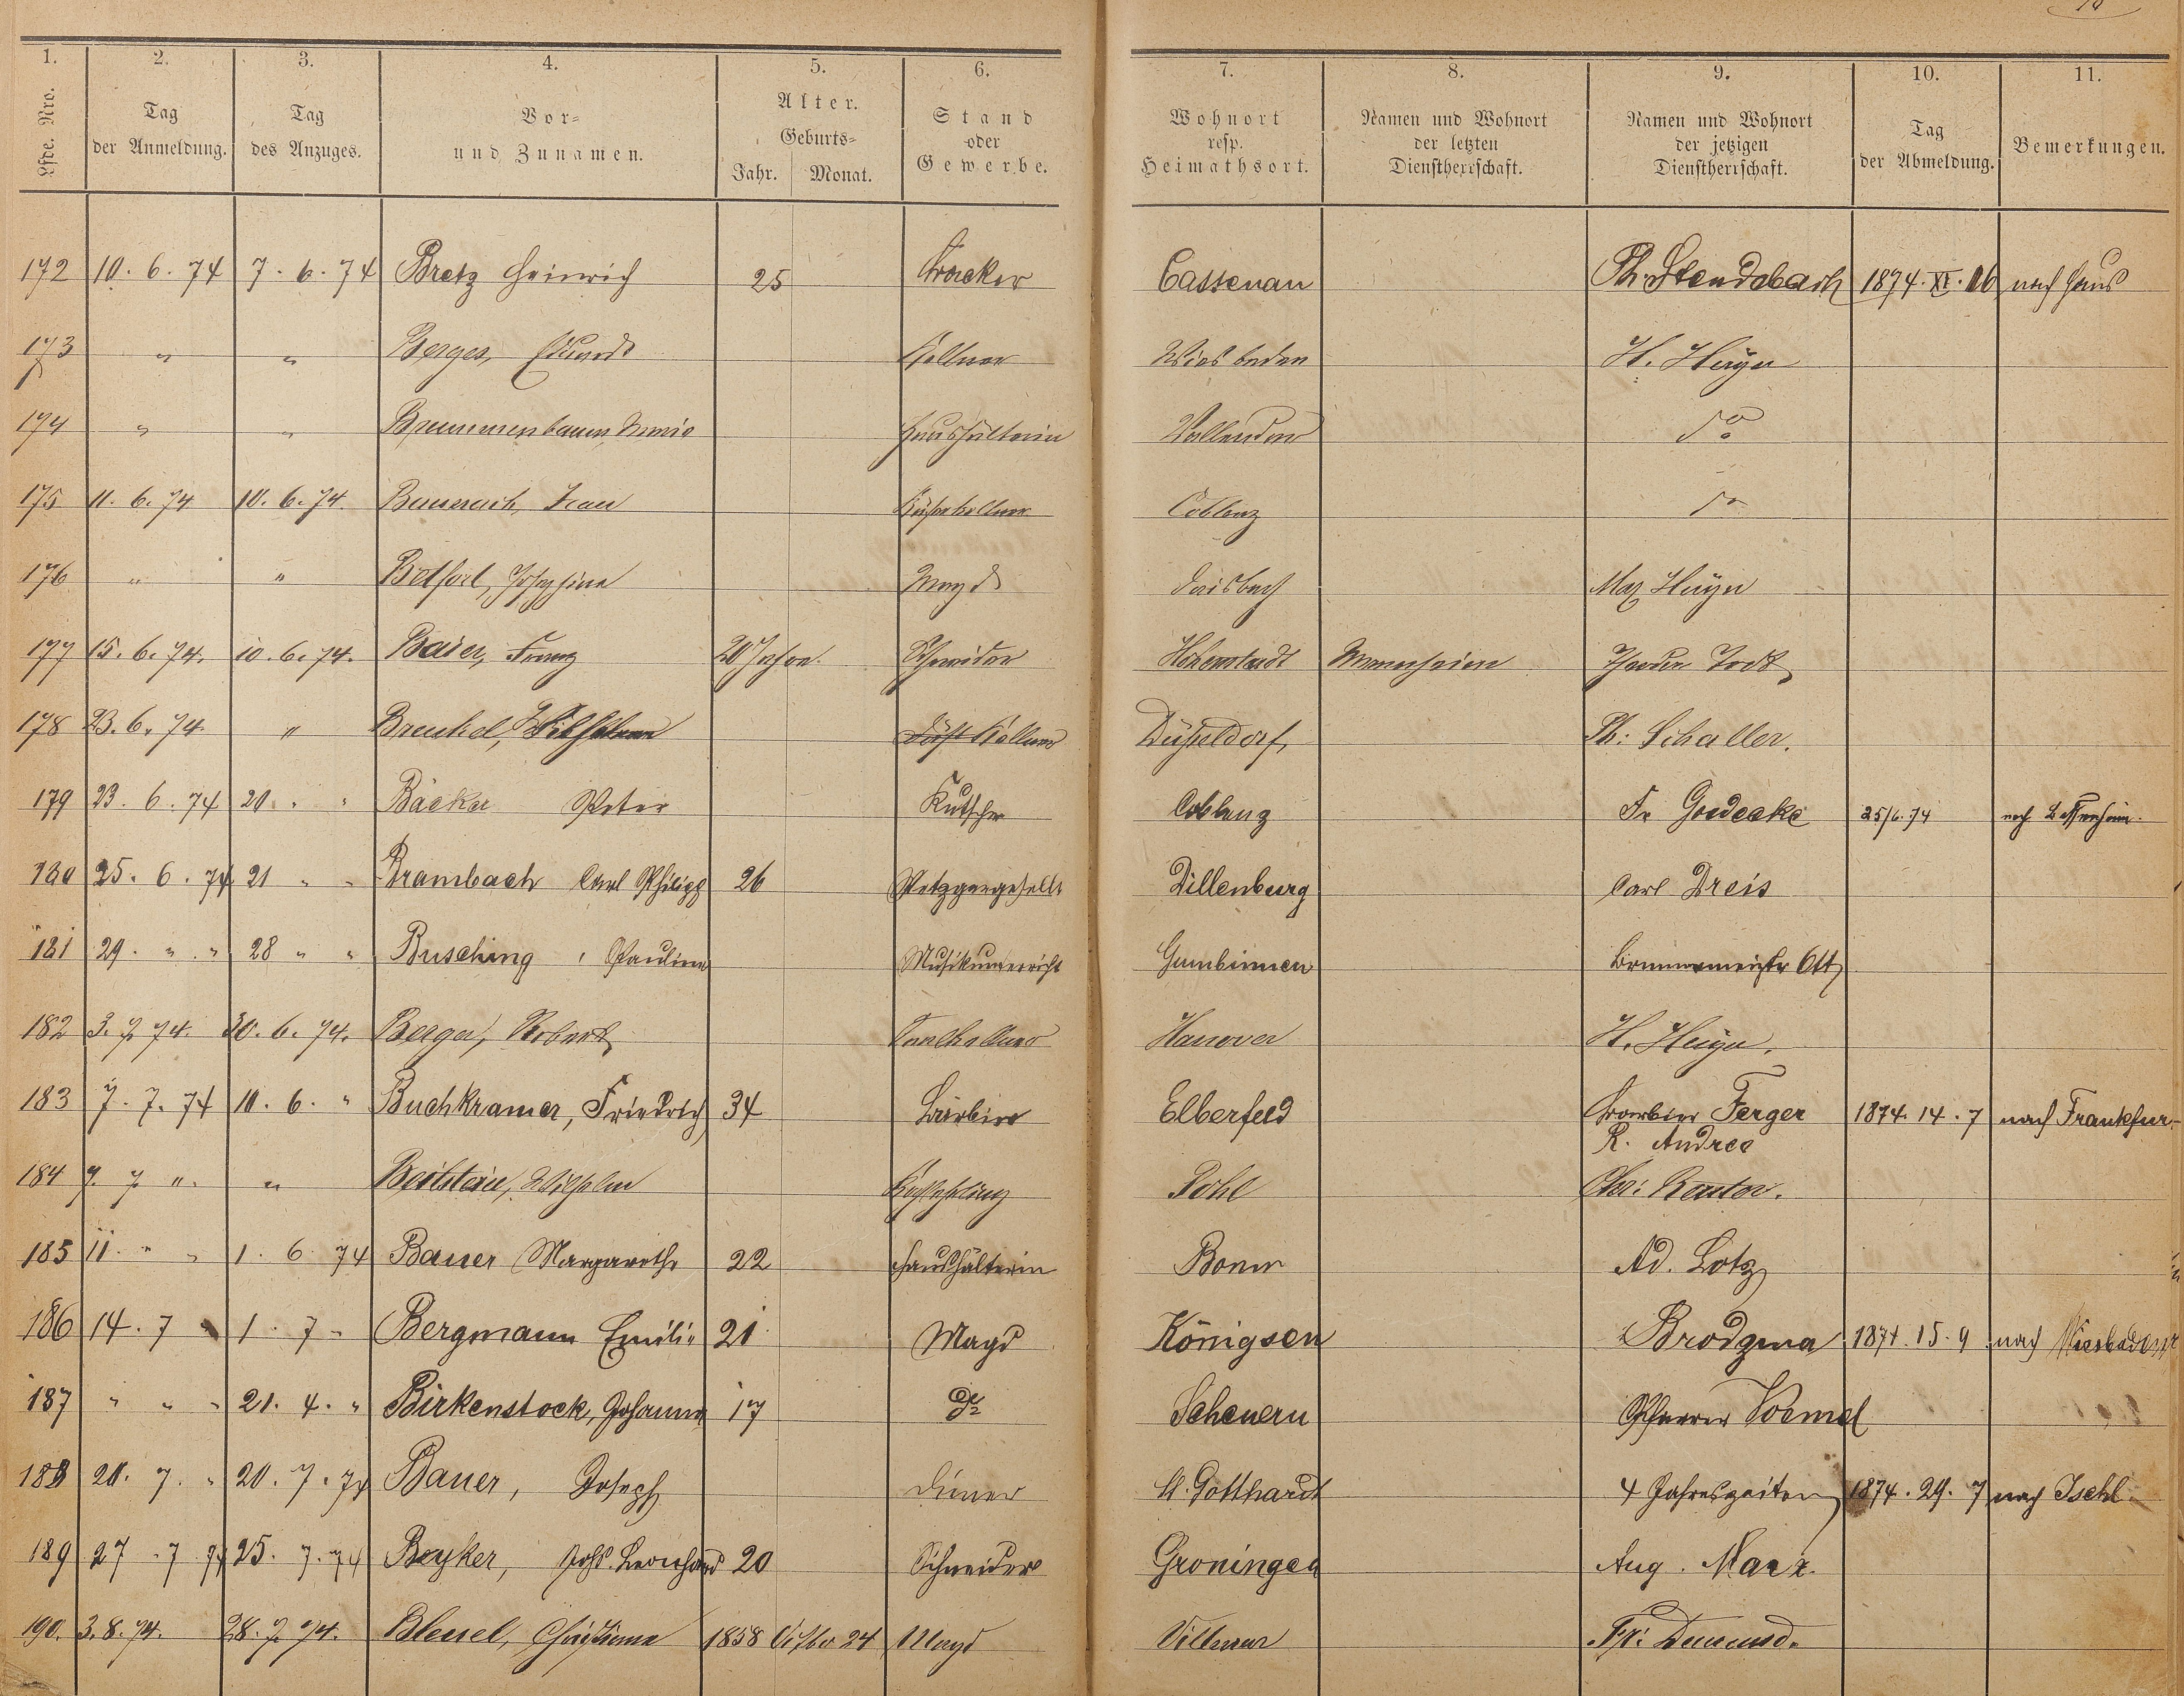 1. 2. 3. 4. 5. 6. 7. 8. 9. 10. 11.
Lfde. Nro. Tag der Anmeldung. Tag des Anzuges. Vor- und Zunamen. Alter. Geburts- Jahr. Monat. Stand oder Gewerbe. Wohnort resp. Heimathsort. Namen und Wohnort der letzten Dienstherrschaft. Namen und Wohnort der jetzigen Dienstherrschaft. Tag der Abmeldung. Bemerkungen.
172 10. 6. 74 7. 6. 74 Bretz Heinrich 25 Cassenau Ph. Stendebach 1874. XI. 16 nach Haus
173 " " Berges, Eduard Kellner Wiesbaden H. Heyn
174 " " Haushälterin Vallendar do
175 11. 6. 74 10. 6. 74. Jean Coblenz do
176 " " Josephine Magd Max Heyn
177 15. 6. 74. 10. 6. 74. Baier, Franz 20 Jahre. Schneider Hohenstadt Mannheim Todt
178 23. 6. 74. " Brenkel, Wilhelm Kellner Düsseldorf, Ph: Schaller.
179 23. 6. 74 20 " " Bäcker Peter Kutscher Coblenz Fr Goedecke 25/6. 74 nach
180 25. 6. 74 21 " " Brambach Carl Philipp 26 Metzgergeselle Dillenburg Carl Dreis
181 29. " " 28 " " Busching, Pauline Musikunterricht Gumbinnen Brunnenmeister Ott
182 3. 7. 74. 30. 6. 74. Berger, Robert Saalkellner Hanover H. Heyn.
183 7. 7. 74 10. 6. " Buchkramer, Friedrich 34 Barbier Elberfeld Barbier Ferger 1874. 14. 7 nach Frankfur-
R. Andree
184 7. 7 " " Beilstein, Wilhelm Pohl Chr: Kantor.
185 11. " " 1. 6. 74 Bauer Margarethe 22 Haushälterin Bonn Ad. Lotz
186 14. 7 " 1. 7 " Bergmann Emilie 21 Magd Königsen Brodzina 1874. 15. 9 nach Wiesbaden
187 " " " 21. 4. " Birkenstock, Johanna 17 do Scheuern Pfarrer Voemel
188 20. 7. " 20. 7. 74 Bauer, Joseph Diener St. Gotthardt 4 Jahreszeiten 1874. 29. 7 nach Ischl
189 27. 7 74 25. 7. 74 Beyker, Johs. Leonhard 20 Schneider Groningen Aug. Marx.
190. 3. 8. 74. 28. 7. 74. Blessel, Christiana 1858 24 Magd Villmar Fr: